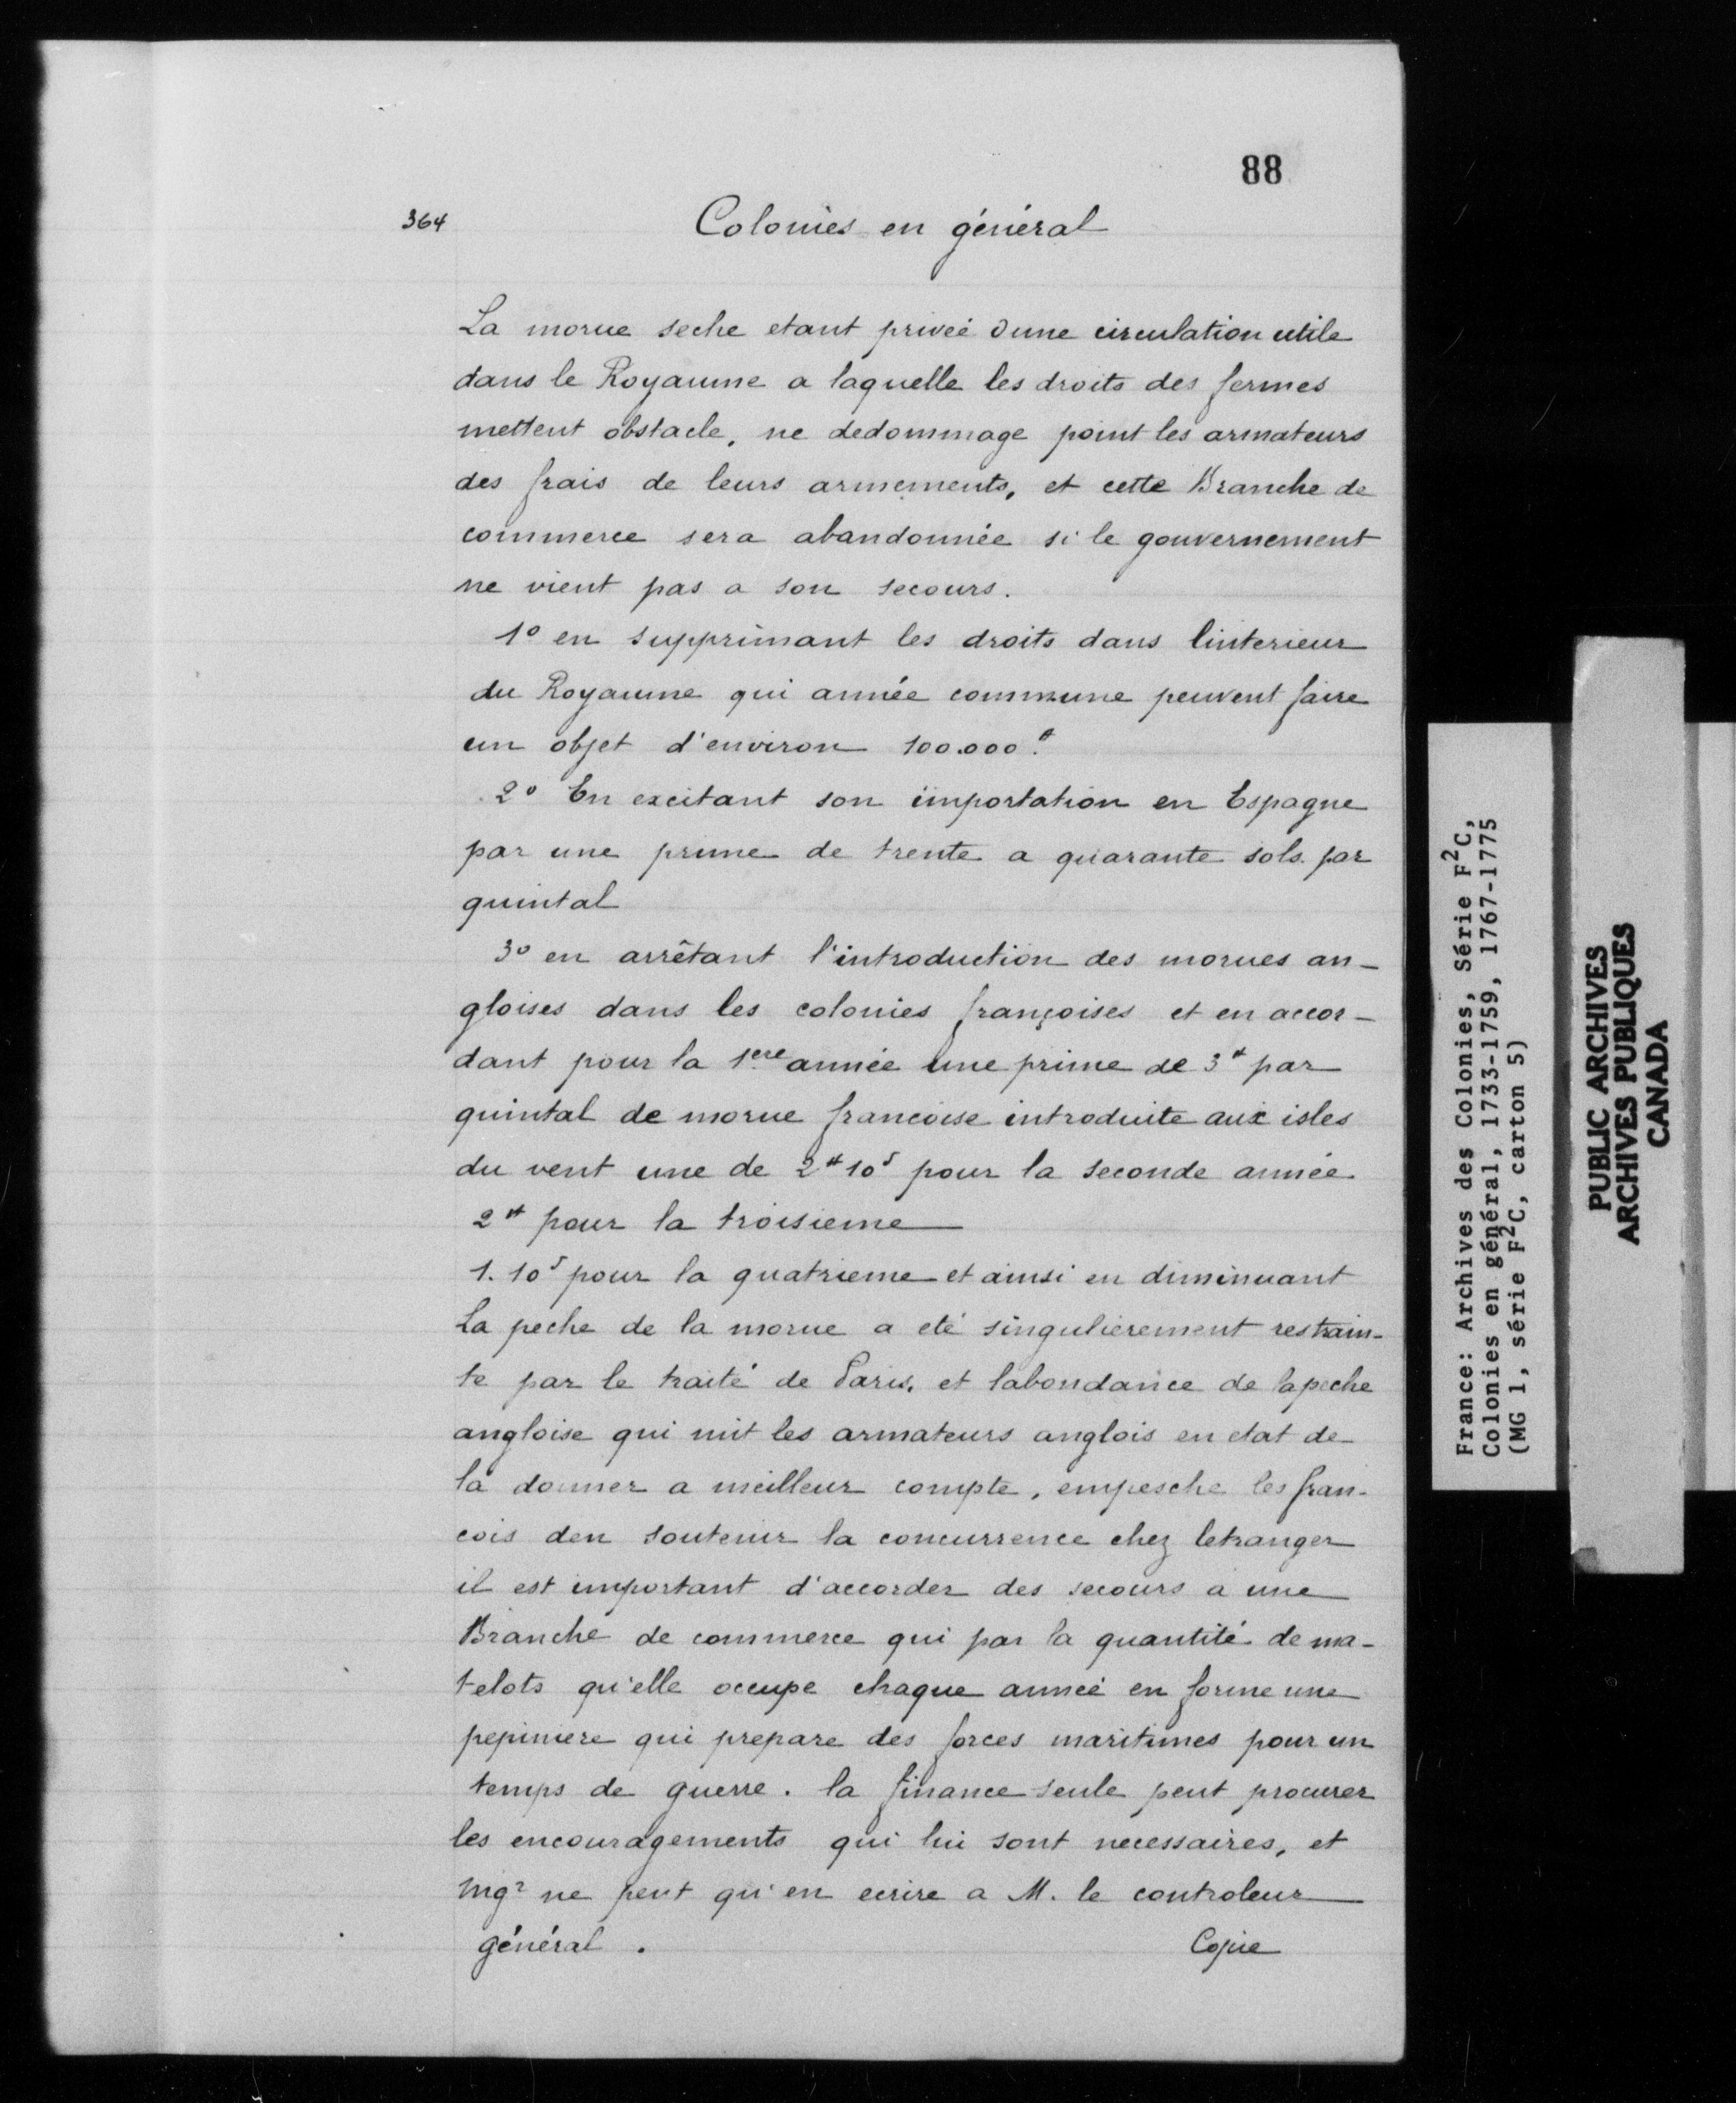 88
364
Colonies en général
La morue seche etant privée dune circulation utile
dans le Royaume a laquelle les droits des fermes
mettent obstacle, ne dedommage point les armateurs
des frais de leurs armements, et cette Branche de
commerce sera abandonnée si le gouvernement
ne vient pas a son secours.
1º en supprimant les droits dans linterieur
du Royaume qui année commune peuvent faire
un objet d'environ 100.000 ₶
2º En excitant son importation en Espagne
par une prime de trente a quarante sols par
quintal
3º en arrêtant l'introduction des morues an-
gloises dans les colonies françoises et en accor-
dant pour la 1ere année une prime de 3₶ par
quintal de morue francoise introduite aux isles
du vent une de 2₶ 10s pour la seconde année
2₶ pour la troisieme
1. 10s pour la quatrieme et ainsi en diminuant
La peche de la morue a eté singulierement restrain-
te par le traité de Paris, et labondance de la peche
angloise qui mit les armateurs anglois en etat de
la donner a meilleur compte, empesche les fran-
cois den soutenir la concurrence chez letranger
il est important d'accorder des secours a une
Branche de commerce qui par la quantité de ma-
telots qu'elle occupe chaque année en forme une
pepiniere qui prepare des forces maritimes pour un
temps de guerre. la finance seule peut procurer
les encouragements qui lui sont necessaires, et
Mgr ne peut qu'en ecrire a M. le controleur
général.
Copie
France: Archives des Colonies, Série F²C,
Colonies en général, 1733-1759, 1767-1775
(MG 1, série F²C, carton 5)
PUBLIC ARCHIVES
ARCHIVES PUBLIQUES
CANADA